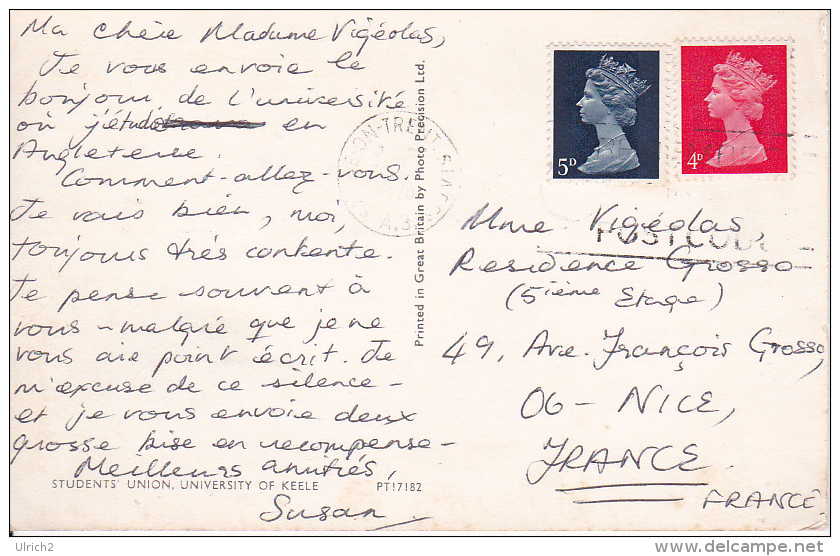 Ma chère Madame Vigéolas,
Je vous envoie le
bonjour de l'université
où j'étudie en
Angleterre.
Comment-allez-vous.
Je vais bien, moi,
toujours très contente.
Je pense souvent à
vous - malgré que je ne
vous aie point écrit. Je
m'excuse de ce silence -
et je vous envoie deux
grosse bise en recompense -
Meilleurs amitiés,
Susan
STUDENTS' UNION, UNIVERSITY OF KEELE PT17182
Printed in Great Britain by Photo Precision Ltd.
ON-TRENT STAFFS
5D
4D
POSTCODE
Mme Vigéolas,
Residence Grosso
(5ième Etage)
49, Ave. François Grosso,
06 - NICE,
FRANCE.
FRANCE
Ulrich2
delcampe.net